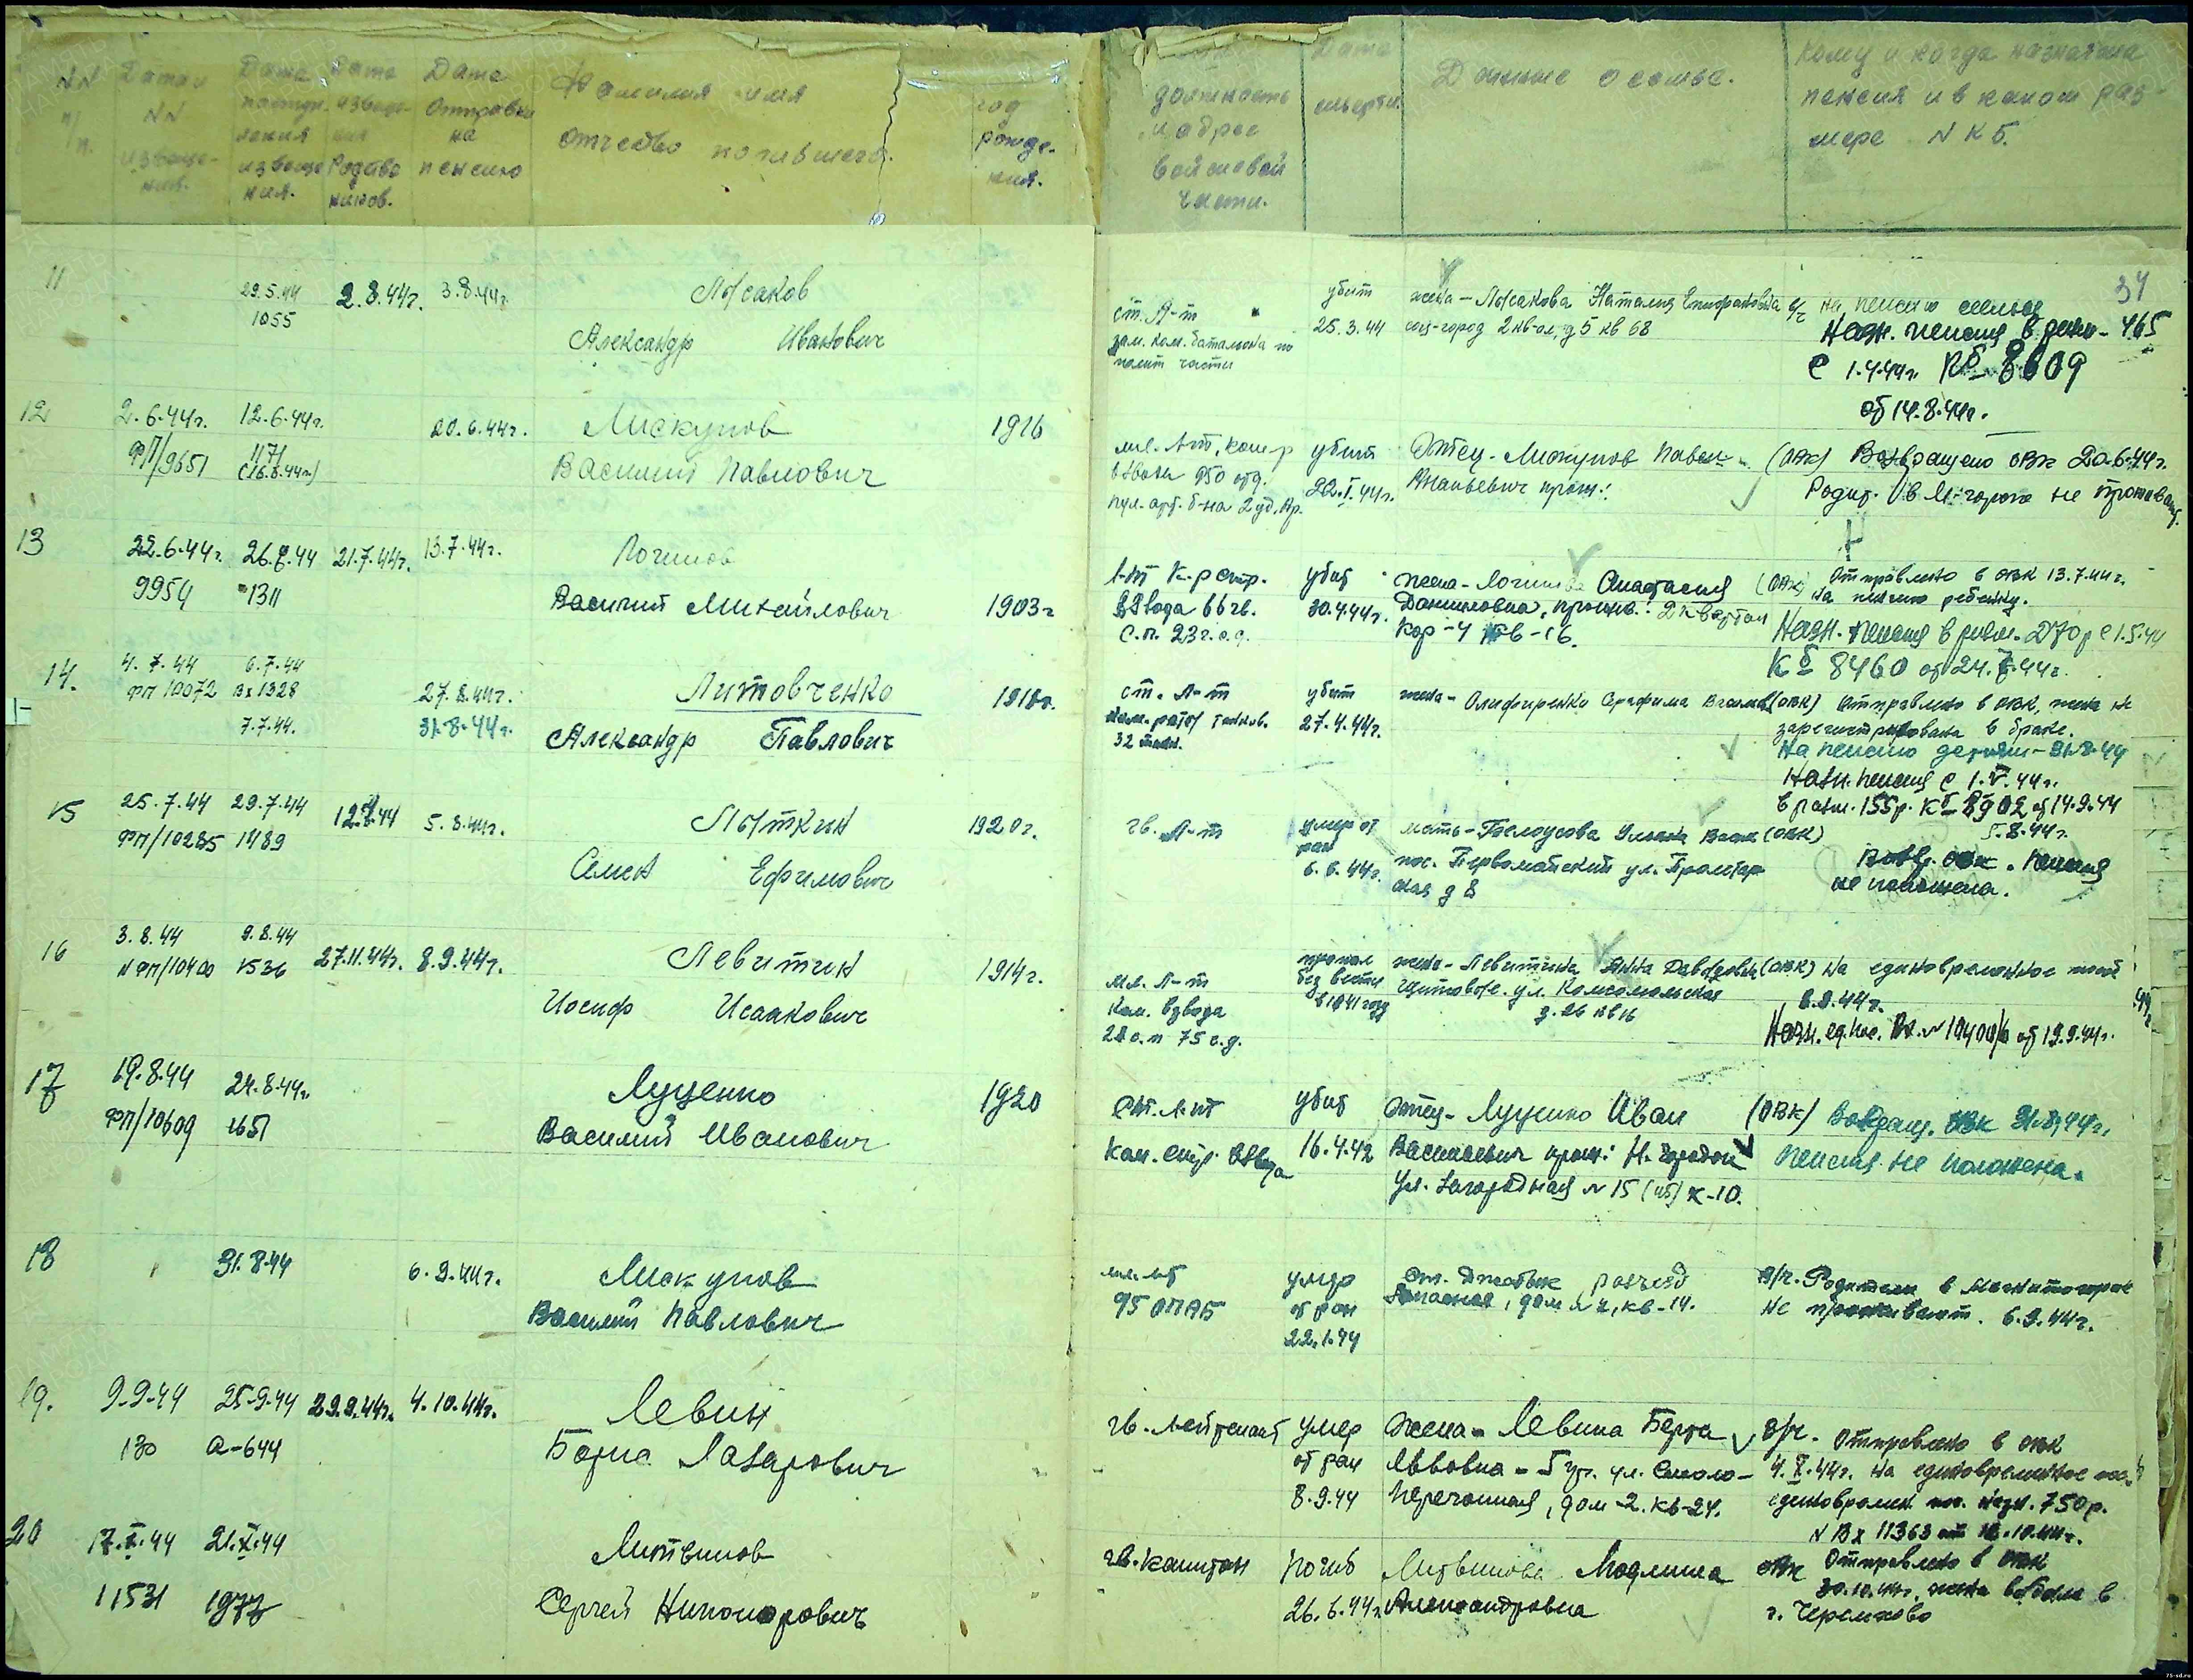 NN п/п.
Дата и NN извеще-ния.
Дата поступ-ления извеще-ния.
Дата извеще-ния Родстве-нников.
Дата Отправки на пенсию
Фамилия имя Отчество погибшего.
год рожде-ния.
должность и адрес войсковой части.
Дата смерти.
Данные о семье.
Кому и когда назначена пенсия и в каком раз-мере N К б.
34
11
29.5.44
1055
2.8.44г.
3.8.44г.
Лысаков
Александр Иванович
ст. Л-т
зам. ком. баталиона по
полит части
убит
25.3.44
жена - Лысакова Наталия
соц-город 2 кв-ал, д 5 кв 68
на пенсию семье
Назн. пенсия в разм - 465
с 1.4.44г. Кб 8609
от 14.8.44г.
12
2.6.44г.
ФП/9651
12.6.44г.
1171
(16.6.44г)
20.6.44г.
Лискунов
Василий Павлович
1916
мл. л-т, ком-р
взвода 950 отд.
пул. арт. б-на 2 уд. Ар.
убит
22.I.44г.
Отец - Лискунов Павел
Ананьевич прож.:
(ОВК) Возвращено ОВК 20.6.44г.
Родит. в М-горске не прожив
13
22.6.44г.
9954
26.6.44
1311
21.7.44г.
13.7.44г.
Логинов
Василий Михайлович
1903г
л-т к-р стр.
взвода 66 гв.
с.п. 23 г.с.д.
убит
30.4.44г.
жена - Логинова Анастасия
Данииловна, прожив.: 2 квартал
кор-4 кв-16.
(ОВК) Отправлено в ОВК 13.7.44г.
на пенсию ребенку.
Назн. пенсия в разм. 270р с 1.5.44
Кб 8460 от 24.7.44г.
14.
4.7.44
ФП 10072
6.7.44
Вх 1328
7.7.44.
27.8.44г.
31.8.44г.
Литовченко
Александр Павлович
1918г.
ст. л-т
ком. роты танков.
32 танк.
убит
27.4.44г.
жена - Олифиренко Серафима
(ОВК) Отправлено в ОВК, жена не
зарегистрована в браке.
На пенсию детям - 31.8.44
Назн. пенсия с 1.V.44г.
в разм. 155р. Кб 8902 от 14.9.44
15
25.7.44
ФП/10285
29.7.44
1489
5.8.44г.
Лыткин
Семен Ефимович
1920г.
гв. л-т
умер от
ран
6.6.44г.
мать - Белоусова Ульяна
пос. Первомайский ул. Пролетар
ская д 8
(ОВК)
5.8.44г.
Возвр. ОВК. Пенсия
не положена.
16
3.8.44
N ФП/10400
9.8.44
1536
27.11.44г.
8.9.44г.
Левитин
Иосиф Исаакович
1914г.
мл. л-т
ком. взвода
28 с.п 75 с.д.
пропал
без вести
в 1941 году
жена - Левитина Анна Давыдовна
щитовые. ул. Комсомольская
д. 26 кв 16
(ОВК) На единовременное пособ
8.9.44г.
Назн. ед. пос. Вх. N 10400/6 от 19.9.44г.
17
19.8.44
ФП/10609
24.8.44г.
1651
Луценко
Василий Иванович
1920
ст. л-т
ком. стр. взвода
убит
16.4.42
Отец - Луценко Иван
Васильевич прож: Н. городок
ул. Загородная N 15 к-10.
(ОВК) Возвращ. ОВК 31.8.44г.
пенсия не положена.
18
31.8.44
6.9.44г.
Лискунов
Василий Павлович
мл. лт
95 ОПАБ
умер
от ран
22.1.44
разъезд
дом N 2, кв-14.
в/ч. Родители в Магнитогорске
не проживают. 6.9.44г.
19.
9.9.44
130
25.9.44
а-644
29.9.44г.
4.10.44г.
Левин
Борис Лазарович
гв. лейтенант
умер
от ран
8.9.44
Жена - Левина Берта
Львовна - 5 уч. ул. Смоло-
перегонная, дом-2. кв-24.
в/ч. Отправлено в ОВК
4.X.44г. на единовременное пос.
единовремен. пос. назн. 750р.
N Вх 11363 от 12.10.44г.
20
17.X.44
11531
21.X.44
1977
Литвинов
Сергей Никонорович
гв. капитан
погиб
26.6.44г.
Литвинова
Александровна
ОВК Отправлено в ОВК
30.10.44г. жена выбыла в
г. Черемхово